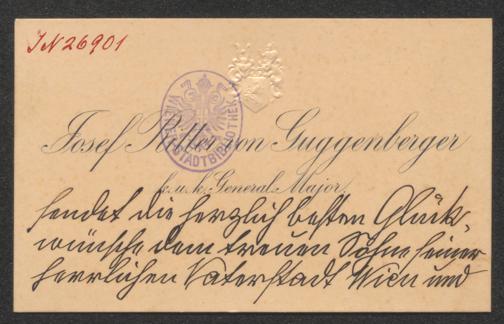 JN 26901
WIENER STADTBIBLIOTHEK
Josef Ritter von Guggenberger
k. u. k. General-Major,
sendet die herzlich besten Glück-
wünsche dem treuen Sohne seiner
herrlichen Vaterstadt Wien und